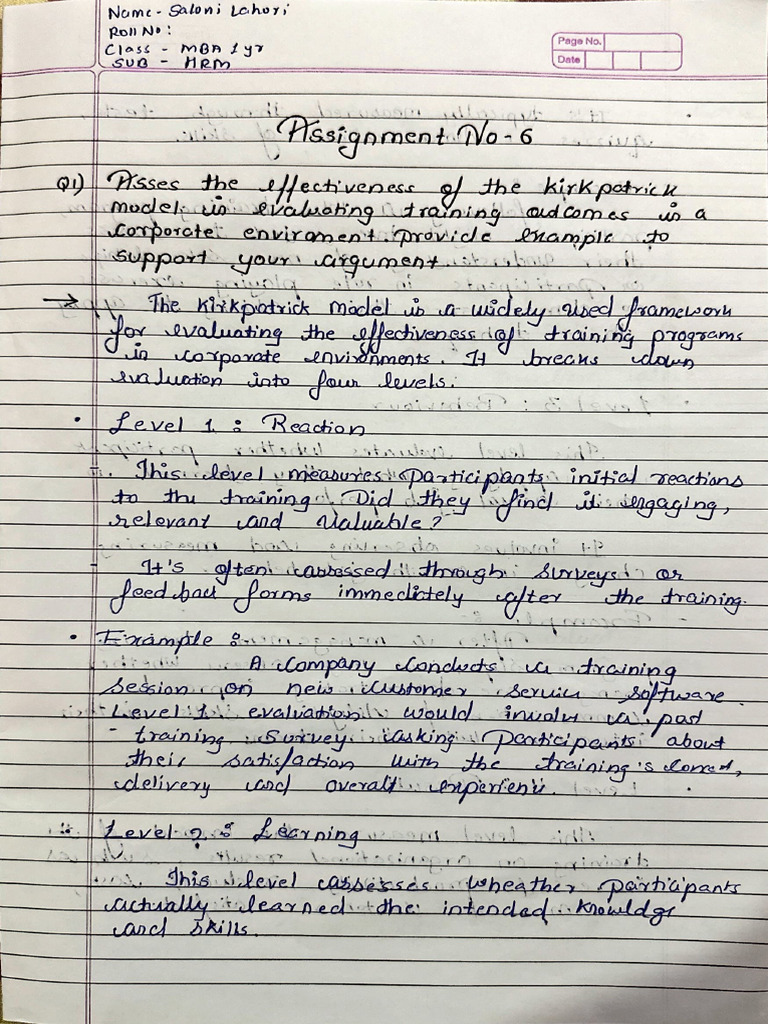 Name - Saloni Lahori
Roll No :
Class - MBA 1yr
SUB - HRM
Page No.
Date
Assignment No - 6
Q1) Asses the effectiveness of the kirkpatrick
model in evaluating training outcomes in a
corporate enviroment. Provide example to
support your argument.
→ The kirkpatrick model is a widely used framework
for evaluating the effectiveness of training programs
in corporate environments. It breaks down
evaluation into four levels.
• Level 1 : Reaction
This level measures participants initial reactions
to the training. Did they find it engaging,
relevant and valuable?
It's often assessed through surveys or
feedback forms immediately after the training.
• Example :
A company conducts a training
session on new customer service software.
Level 1 evaluation would involve a post
training survey asking participants about
their satisfaction with the training's content,
delivery and overall experience.
Level 2 : Learning
This level assesses wheather participants
actually learned the intended knowldge
and skills.